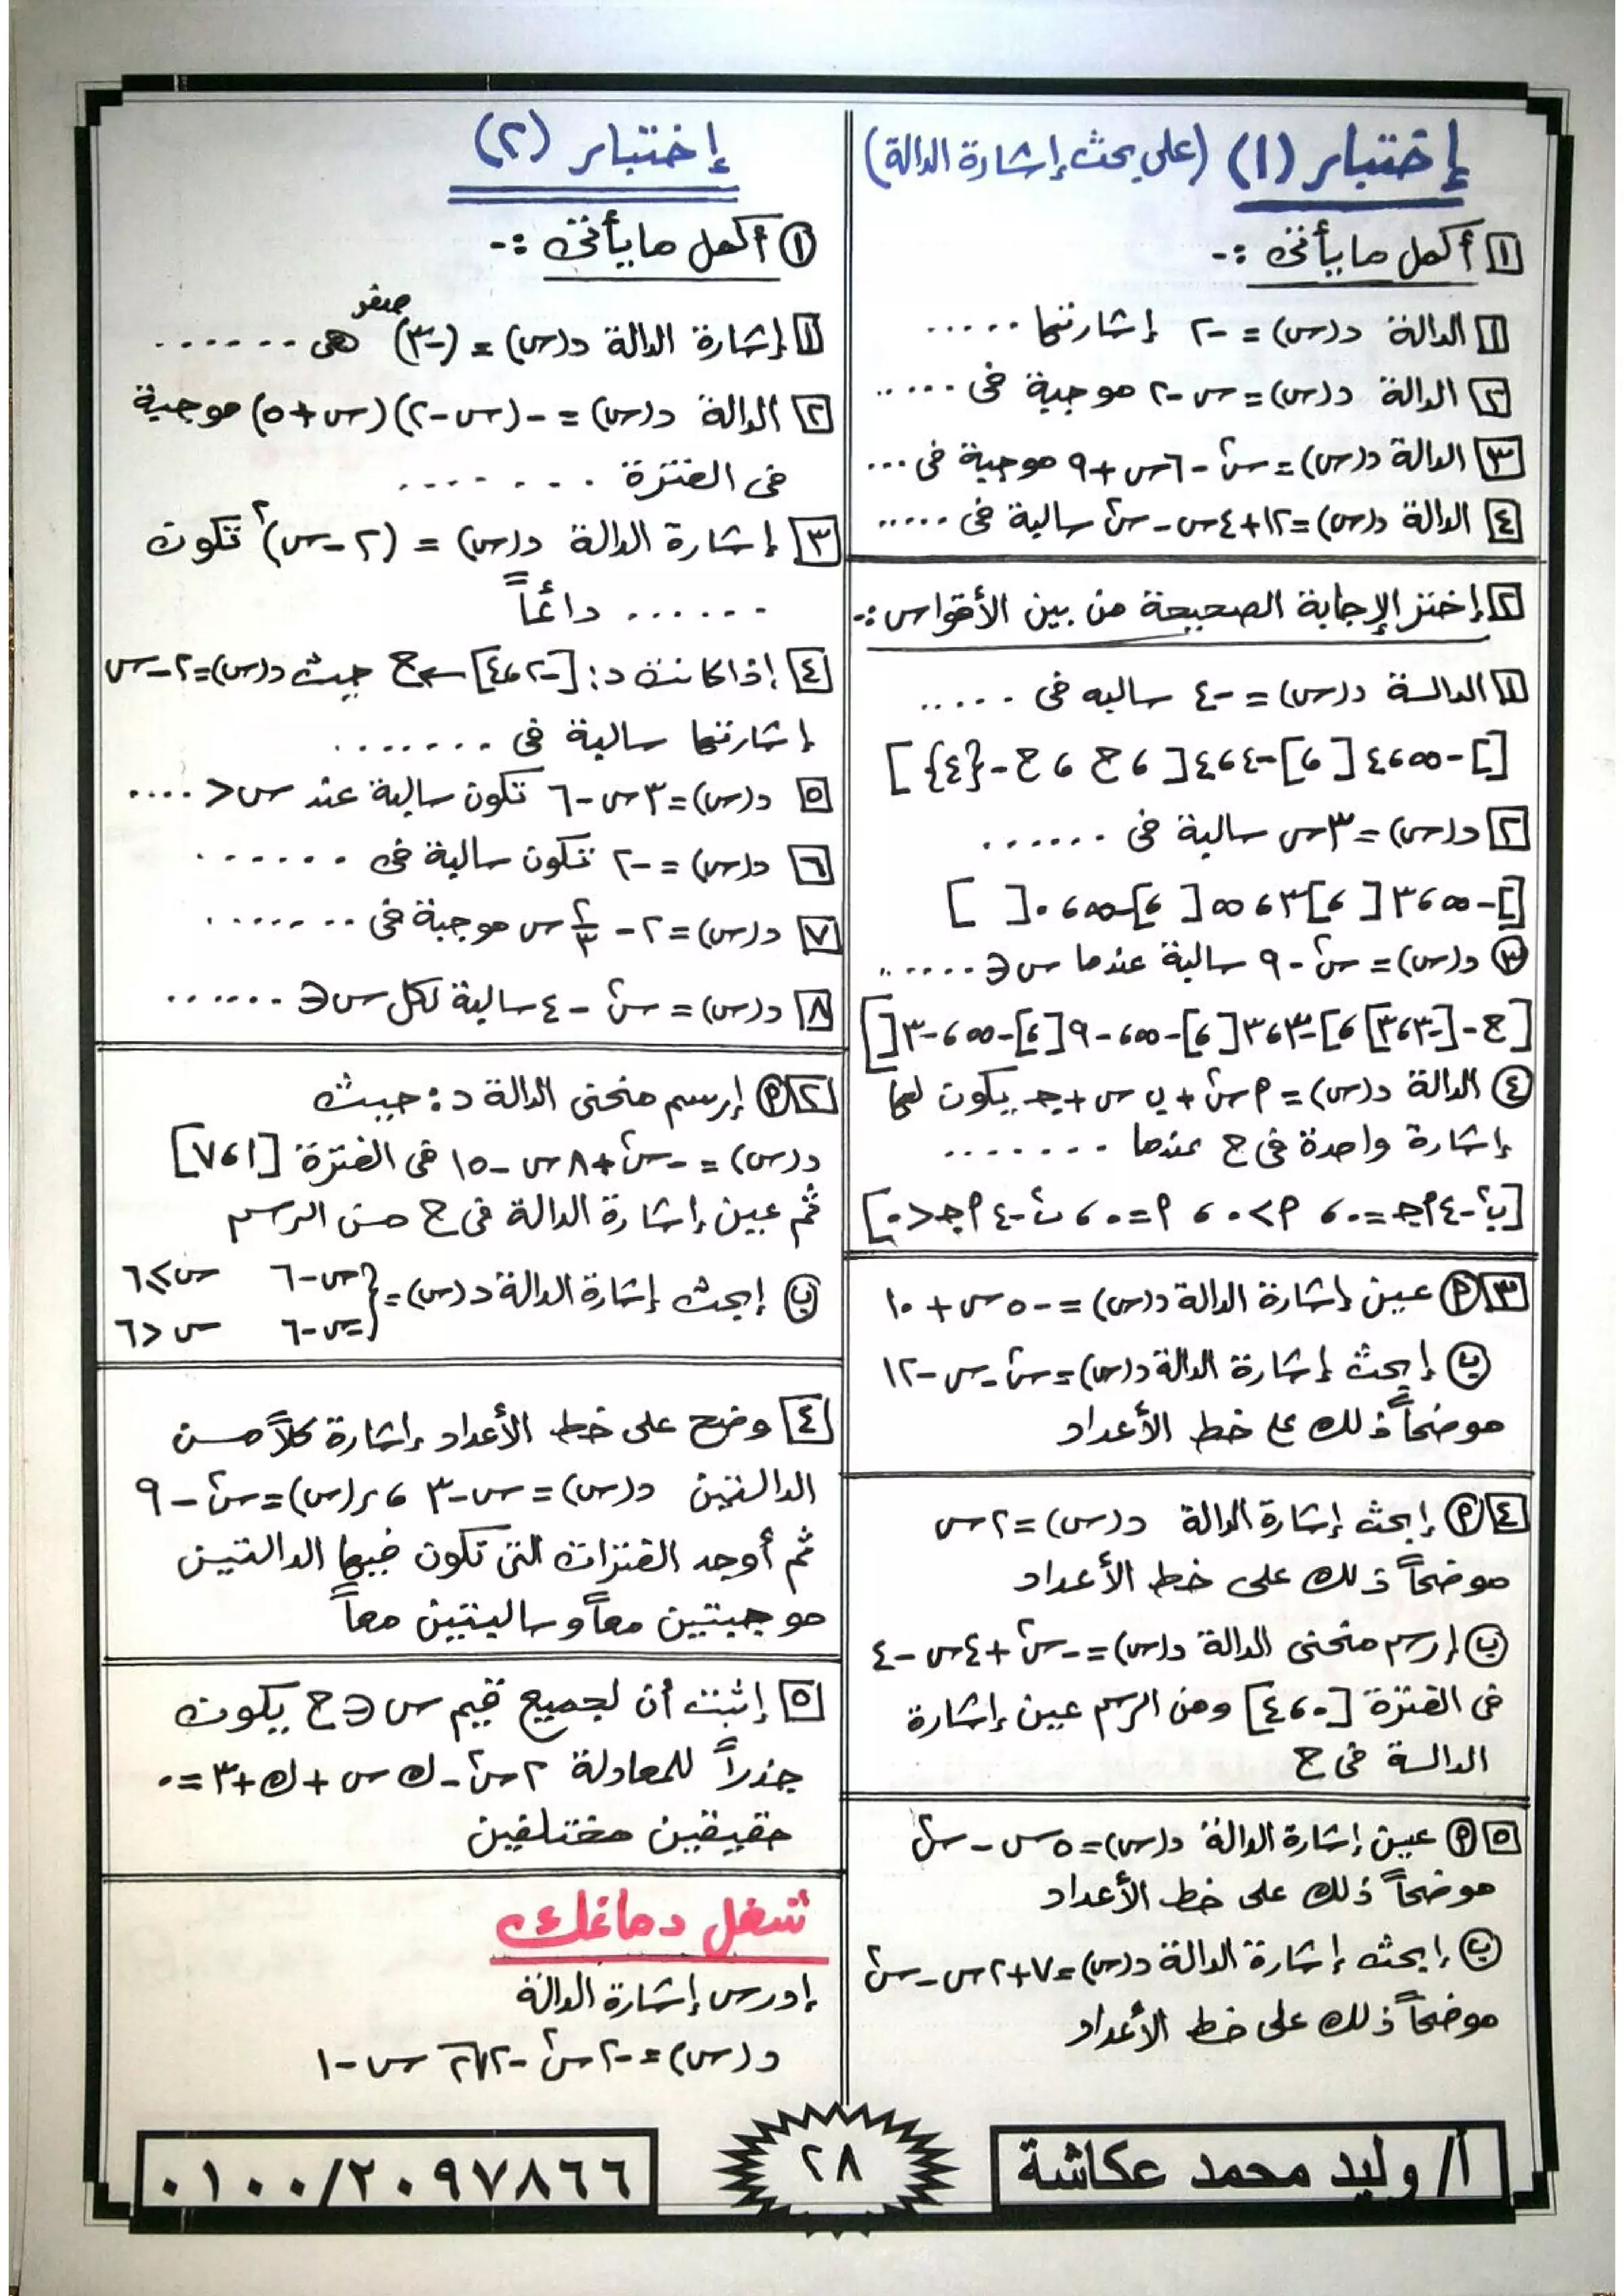 إختبار (١) (على بحث إشارة الدالة)
١ أكمل ما يأتى :-
١ الدالة د(س) = -٢ إشارتها .....
٢ الدالة د(س) = س - ٢ موجبة فى .....
٣ الدالة د(س) = س٢ - ٦س + ٩ موجبة فى ...
٤ الدالة د(س) = ١٢ + ٤س - س٢ سالبة فى .....
٢ إختر الإجابة الصحيحة من بين الأقواس :-
١ الدالة د(س) = -٤ سالبه فى .....
[ ]-∞ ، ٤[ ، ]-٤ ، ٤[ ، ح ، ح - {٤} ]
٢ د(س) = ٣س سالبة فى ......
[ ]-∞ ، ٣[ ، ]٣ ، ∞[ ، ]-∞ ، ٠[ ]
٣ د(س) = س٢ - ٩ سالبة عندما س ∈ ......
[ ح - [-٣ ، ٣] ، ]-٣ ، ٣[ ، ]-∞ ، -٩[ ، ]-∞ ، -٣[ ]
٤ الدالة د(س) = أس٢ + ب س + جـ يكون لها
إشارة واحدة فى ح عندما ........
[ ب٢ - ٤أجـ = ٠ ، أ > ٠ ، أ = ٠ ، ب٢ - ٤أجـ < ٠ ]
٣ أ عين إشارة الدالة د(س) = -٥س + ١٠
ب إبحث إشارة الدالة د(س) = س٢ - س - ١٢
موضحاً ذلك على خط الأعداد
٤ أ إبحث إشارة الدالة د(س) = ٢س
موضحاً ذلك على خط الأعداد
ب إرسم منحنى الدالة د(س) = -س٢ + ٤س - ٤
فى الفترة [٠ ، ٤] ومن الرسم عين إشارة
الدالة فى ح
٥ أ عين إشارة الدالة د(س) = ٥س - س٢
موضحاً ذلك على خط الأعداد
ب إبحث إشارة الدالة د(س) = ٧ + ٢س - س٢
موضحاً ذلك على خط الأعداد
إختبار (٢)
١ أكمل ما يأتى :-
١ إشارة الدالة د(س) = (-٣)صفر هى ......
٢ الدالة د(س) = -(س - ٢)(س + ٥) موجبة
فى الفترة .......
٣ إشارة الدالة د(س) = (٢ - س)٢ تكون
...... دائماً
٤ إذا كانت د : [-٢ ، ٤] ← ح حيث د(س) = ٢ - س
إشارتها سالبة فى .......
٥ د(س) = ٣س - ٦ تكون سالبة عند س < ....
٦ د(س) = -٢ تكون سالبة فى ......
٧ د(س) = ٢ - ٢/٣ س موجبة فى .......
٨ د(س) = س٢ - ٤ سالبة لكل س ∈ ......
٢ أ إرسم منحنى الدالة د : حيث
د(س) = -س٢ + ٨س - ١٥ فى الفترة [١ ، ٧]
ثم عين إشارة الدالة فى ح من الرسم
ب إبحث إشارة الدالة د(س) = { س - ٦ س ≥ ٦
-س - ٦ س < ٦
٤ وضح على خط الأعداد إشارة كلاً من
الدالتين د(س) = س - ٣ ، ر(س) = س٢ - ٩
ثم أوجد الفترات التى تكون فيها الدالتين
موجبتين معاً وسالبتين معاً
٥ إثبت أن لجميع قيم س ∈ ح يكون
جذراً للمعادلة ٢س٢ - ك س + ك + ٣ = ٠
حقيقيين مختلفين
شغل دماغك
إدرس إشارة الدالة
د(س) = -٢س٢ - ٢√٢ س - ١
أ/ وليد محمد عكاشة
٢٨
٠١٠٠/٢٠٩٧٨٦٦